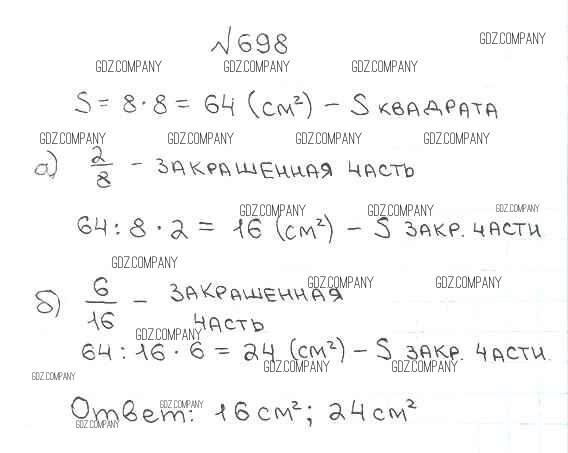 №698
GDZ.COMPANY
GDZ.COMPANY GDZ.COMPANY GDZ.COMPANY
S = 8 · 8 = 64 (см²) – S КВАДРАТА
GDZ.COMPANY GDZ.COMPANY GDZ.COMPANY GDZ.COMPANY
а) 2/8 – ЗАКРАШЕННАЯ ЧАСТЬ
GDZ.COMPANY GDZ.COMPANY GDZ.COMPANY
64 : 8 · 2 = 16 (см²) – S ЗАКР. ЧАСТИ
GDZ.COMPANY
GDZ.COMPANY GDZ.COMPANY
б) 6/16 – ЗАКРАШЕННАЯ
ЧАСТЬ
GDZ.COMPANY
64 : 16 · 6 = 24 (см²) – S ЗАКР. ЧАСТИ.
GDZ.COMPANY GDZ.COMPANY
GDZ.COMPANY
GDZ.COMPANY
Ответ: 16 см²; 24 см²
GDZ.COMPANY